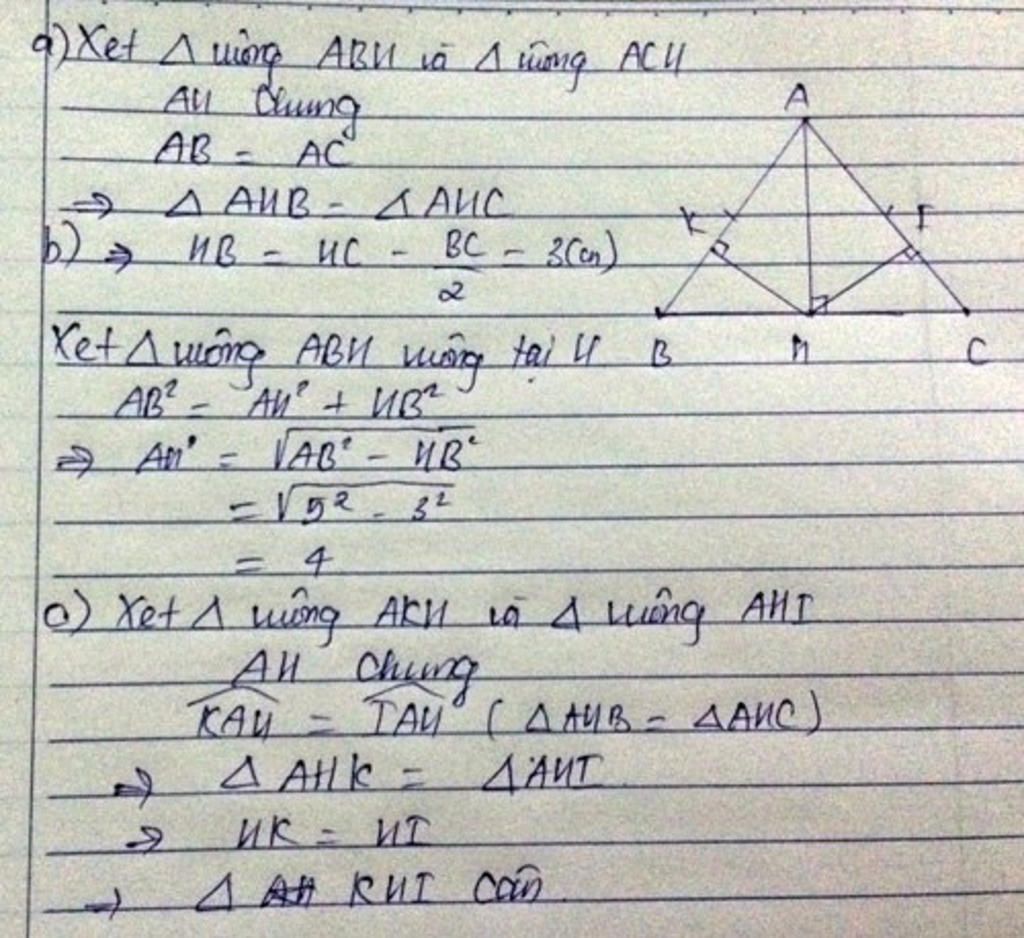 a) Xét Δ vuông ABH và Δ vuông ACH
AH chung
AB = AC
⇒ Δ AHB = Δ AHC
b) ⇒ HB = HC = BC/2 = 3(cm)
Xét Δ vuông ABH vuông tại H
AB² = AH² + HB²
⇒ AH² = √AB² - HB²
= √5² - 3²
= 4
c) Xét Δ vuông AKH và Δ vuông AHI
AH chung
KAH = IAH ( Δ AHB = Δ AHC )
⇒ Δ AHK = Δ AHI
⇒ HK = HI
→ Δ KHI cân
A
K
I
B
H
C